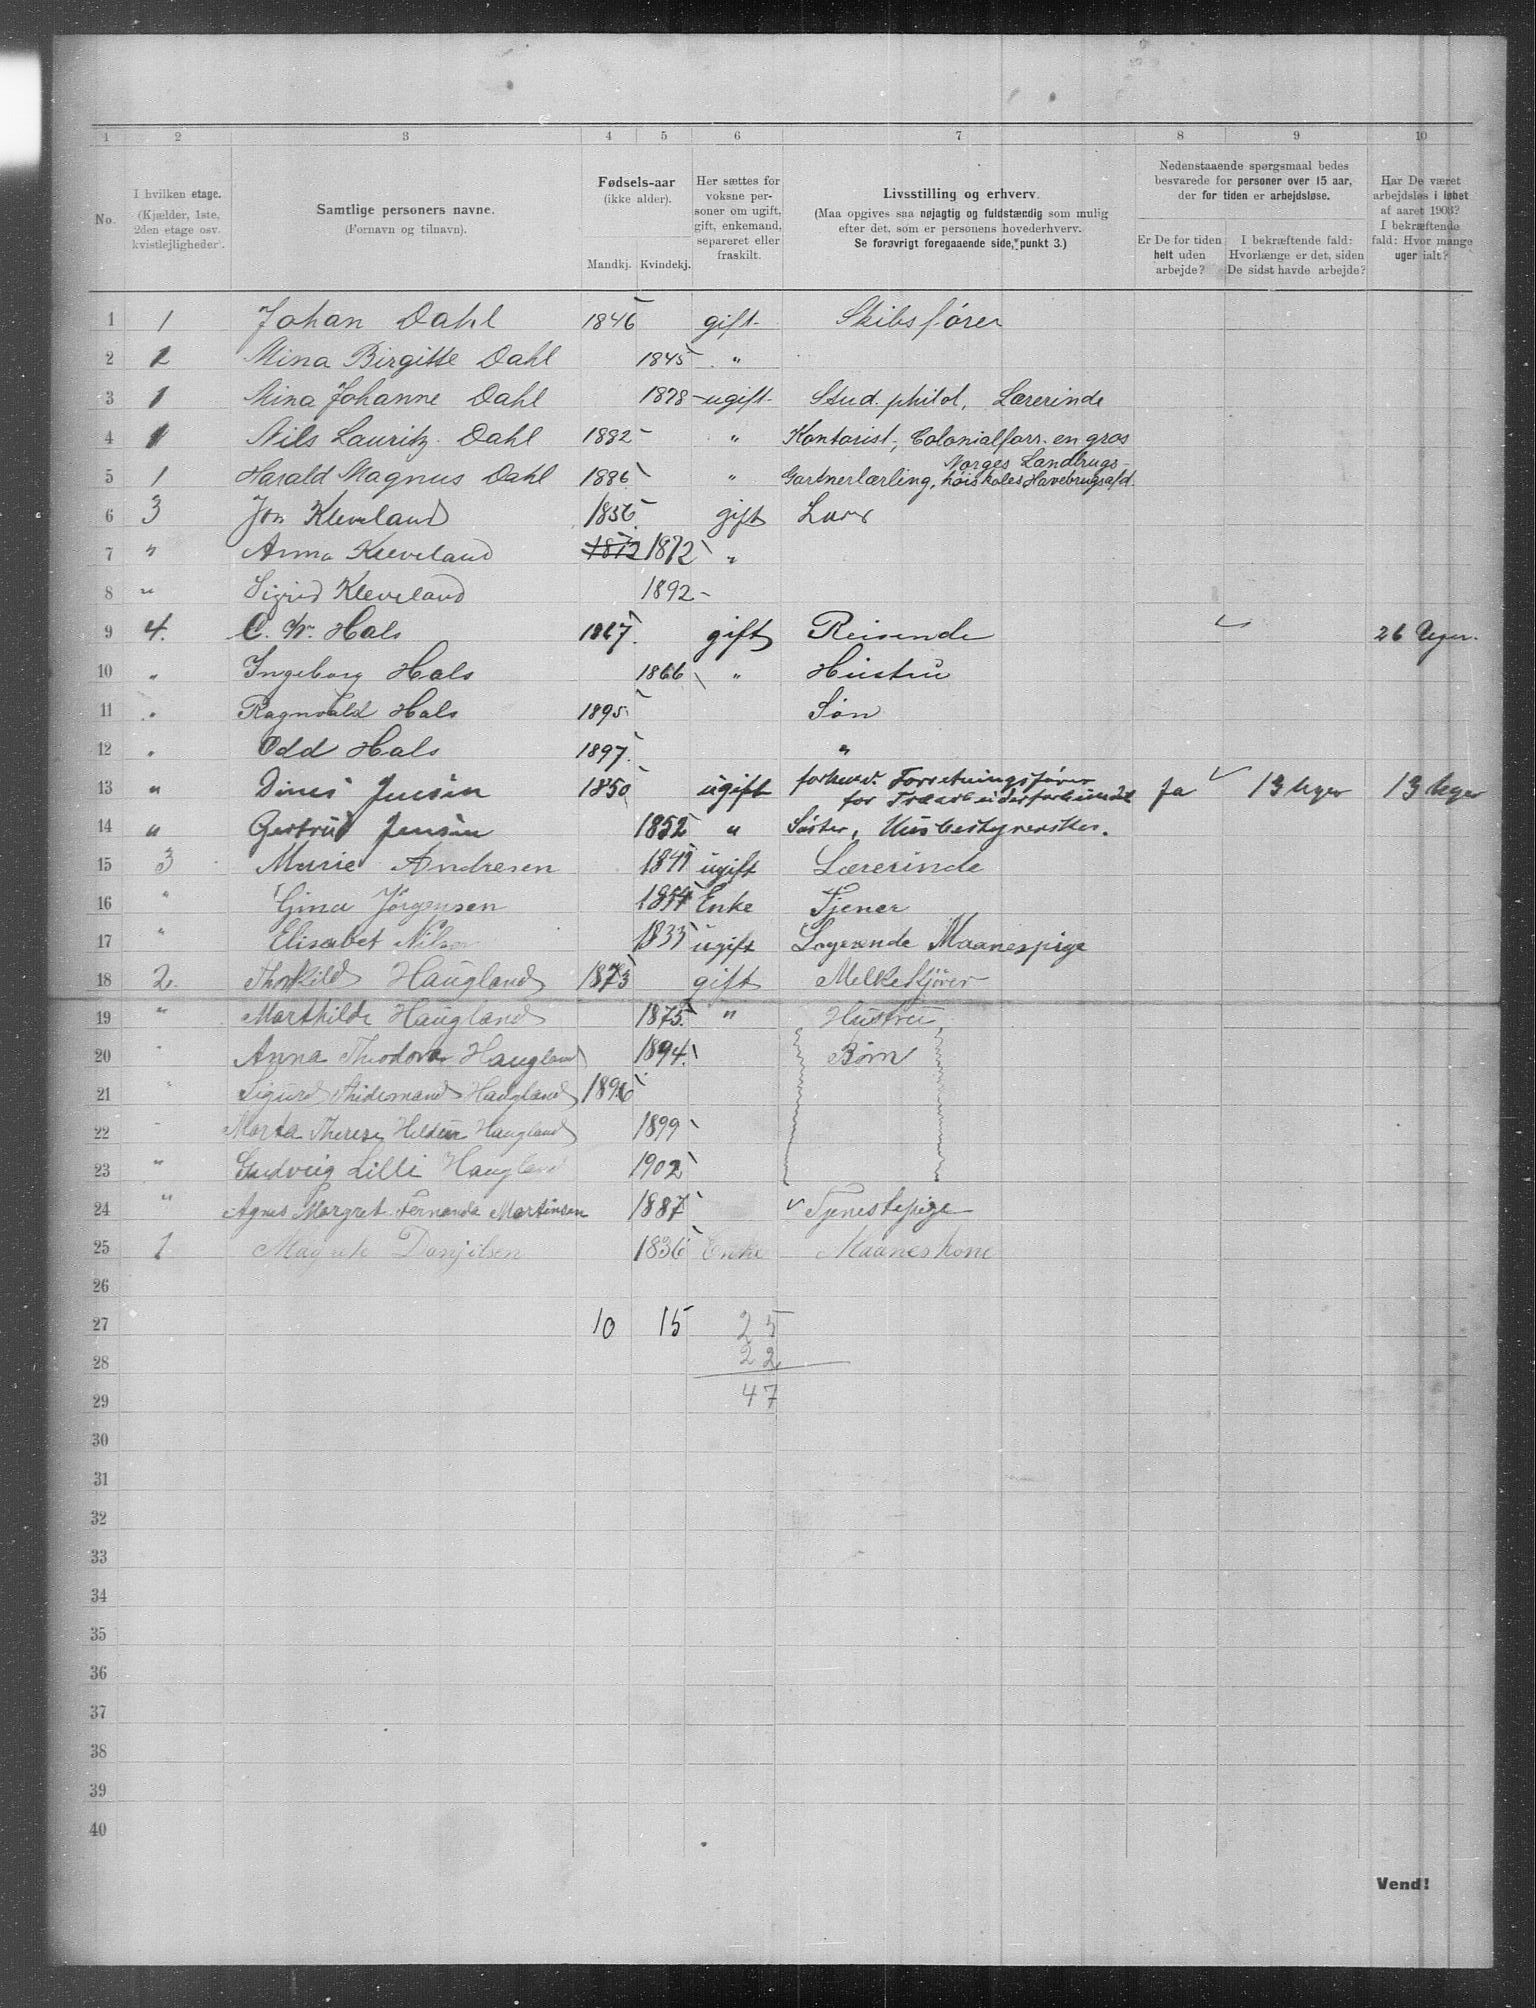 1 2 3 4 5 6 7 8 9 10
No.
I hvilken etage.
(Kjælder, 1ste,
2den etage osv.
kvistlejligheder).
Samtlige personers navne.
(Fornavn og tilnavn).
Fødsels-aar
(ikke alder).
Mandkj. Kvindekj.
Her sættes for
voksne per-
soner om ugift,
gift, enkemand,
separeret eller
fraskilt.
Livsstilling og erhverv.
(Maa opgives saa nøjagtig og fuldstændig som mulig
efter det, som er personens hovederhverv.
Se forøvrigt foregaaende side, punkt 3.)
Nedenstaaende spørgsmaal bedes
besvarede for personer over 15 aar,
der for tiden er arbejdsløse.
Er De for tiden
helt uden
arbejde?
I bekræftende fald:
Hvorlænge er det, siden
De sidst havde arbejde?
Har De været
arbejdsløs i løbet
af aaret 1903?
I bekræftende
fald: Hvor mange
uger ialt?
1 1 Johan Dahl 1846 gift Skibsfører
2 1 Mina Birgitte Dahl 1845 "
3 1 Mina Johanne Dahl 1878 ugift Stud. philol, Lærerinde
4 1 Nils Lauritz Dahl 1882 " Kontorist, Colonialforr. en gros
5 1 Harald Magnus Dahl 1886 " Gartnerlærling, Norges Landbrugs-
høiskoles Havebrugsafd.
6 3 Jon Kleveland 1856 gift
7 " Anna Kleveland 1872 1872 "
8 " Sigrid Kleveland 1892
9 4. C. Hals 1867 gift Reisende 26 Uger.
10 " Ingeborg Hals 1866 " Hustru
11 " Ragnvald Hals 1895 Søn
12 " Odd Hals 1897 "
13 " Dines Jensen 1850 ugift forhenv. Forretningsfører
for Træarbeiderforbundet Ja 13 Uger 13 Uger
14 " Gertrud Jensen 1852 " Søster, Husbestyrerske.
15 3 Marie Andresen 1849 ugift Lærerinde
16 " Gina Jørgensen 1854 Enke Tjener
17 " Elisabet Nilsen 1833 ugift Logerende Maanespige
18 2. Thorkild Haugland 1873 gift Melkekjører
19 " Marthilde Haugland 1875 " Hustru
20 " Anna Theodora Haugland 1894 Børn
21 " Sigurd Haugland 1896
22 " Marta Therese Haugland 1899
23 " Lilli Haugland 1902
24 " Agnes Margret Fernanda Martinsen 1887 Tjenestepige
25 1 Danjelsen 1836 Enke Maaneskone
26
27 10 15 25
28 22
29 47
30
31
32
33
34
35
36
37
38
39
40
Vend!